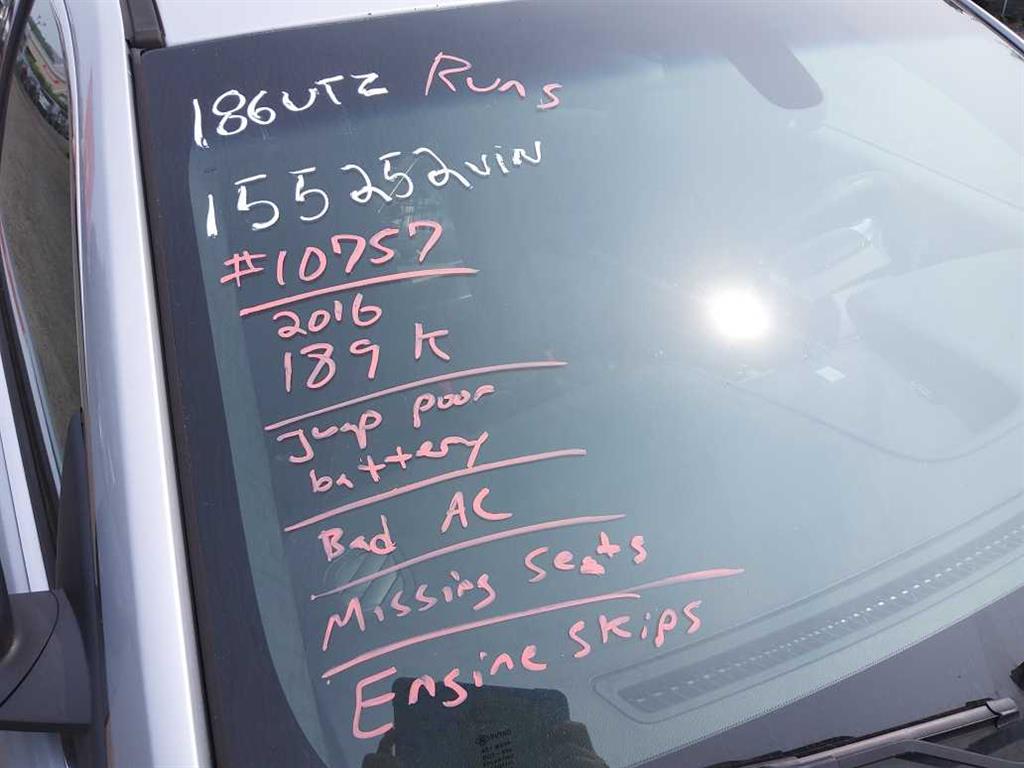 186UTZ Runs
155252VIN
#10757
2016
189 K
Jump poor
battery
Bad AC
Missing Seats
Engine Skips